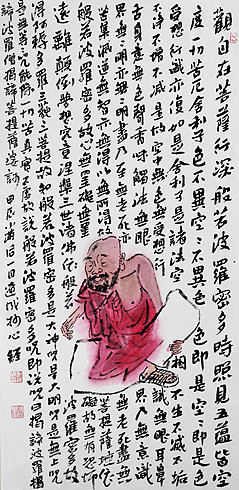 觀自在菩薩行深般若波羅密多時照見五蘊皆空
度一切苦厄舍利子色不異空空不異色色即是空空即是色
受想行識亦復如是舍利子是諸法空相不生不滅不垢
不淨不增不減是故空中無色無受想行識無眼耳鼻舌
身意無色聲香味觸法無眼界乃至無意識
界無無明亦無無明盡乃至無老死亦無老死盡無
苦集滅道無智亦無得以無所得故菩提薩埵依
般若波羅密多故心無罣礙無罣礙故無有恐怖
遠離顛倒夢想究竟涅槃三世諸佛依般若波羅密多故
得阿耨多羅三藐三菩提故知般若波羅密多是大神咒是大明咒是無上咒
是無等等咒能除一切苦真實不虛故說般若波羅密多咒即說咒曰揭諦揭諦波羅揭
諦波羅僧揭諦菩提薩婆訶 心經